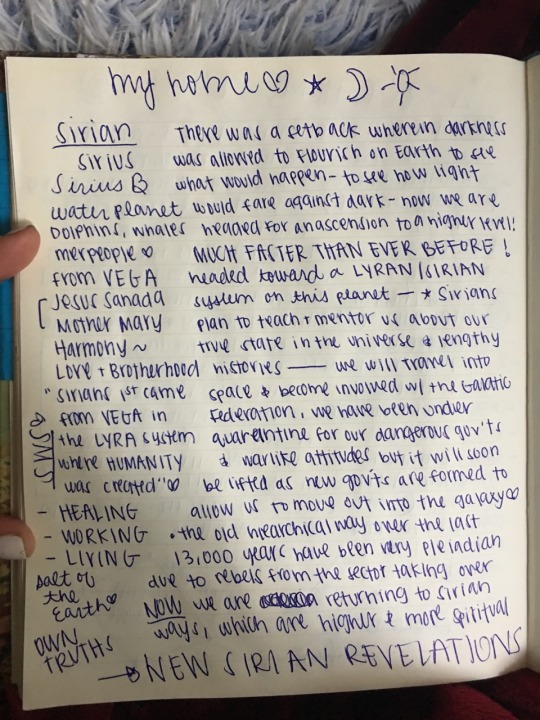 my home♡ ★ ☾ ☼
sirian
sirius
Sirius B
water planet
Dolphins, whales
merpeople ♡
from VEGA
Jesus Sanada
Mother Mary
Harmony ~
Love + Brotherhood
"Sirians 1st came
from VEGA in
the LYRA system
where HUMANITY
was created"♡
SMS
- HEALING
- WORKING
- LIVING
salt of
the
Earth♡
OWN
TRUTHS
There was a setback wherein darkness
was allowed to flourish on Earth to see
what would happen - to see how light
would fare against dark - now we are
headed for an ascension to a higher level!
MUCH FASTER THAN EVER BEFORE!
headed toward a LYRAN/SIRIAN
system on this planet — ★ Sirians
plan to teach + mentor us about our
true state in the universe & lengthy
histories — we will travel into
space & become involved w/ the Galatic
Federation, we have been under
quarantine for our dangerous gov'ts
& warlike attitudes but it will soon
be lifted as new gov'ts are formed to
allow us to move out into the galaxy♡
• the old hierarchical way over the last
13,000 years have been very pleiadian
due to rebels from the sector taking over
NOW we are returning to sirian
ways, which are higher & more spiritual
→ NEW SIRIAN REVELATIONS